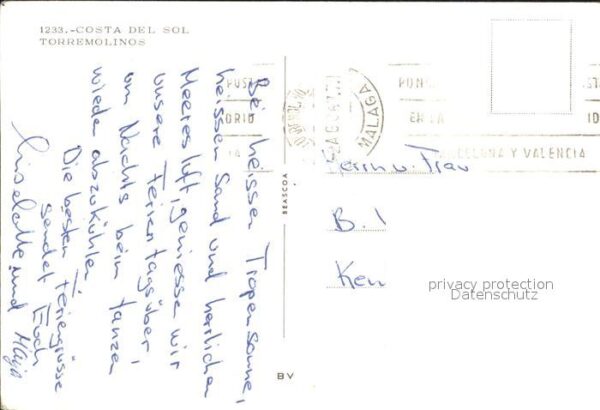 1233.-COSTA DEL SOL
TORREMOLINOS
Bei heisser Tropensonne,
heissen Sand und herrlicher
Meeresluft, geniessen wir
unsere Ferien tagsüber,
um Nachts beim tanzen
wieder abzukühlen
Die besten Feriengrüsse
sendet Euch
Liselotte und
BEASCOA
BV
MALAGA
EN LA
BARCELONA Y VALENCIA
Herrn u. Frau
B. I
Ken
privacy protection
Datenschutz